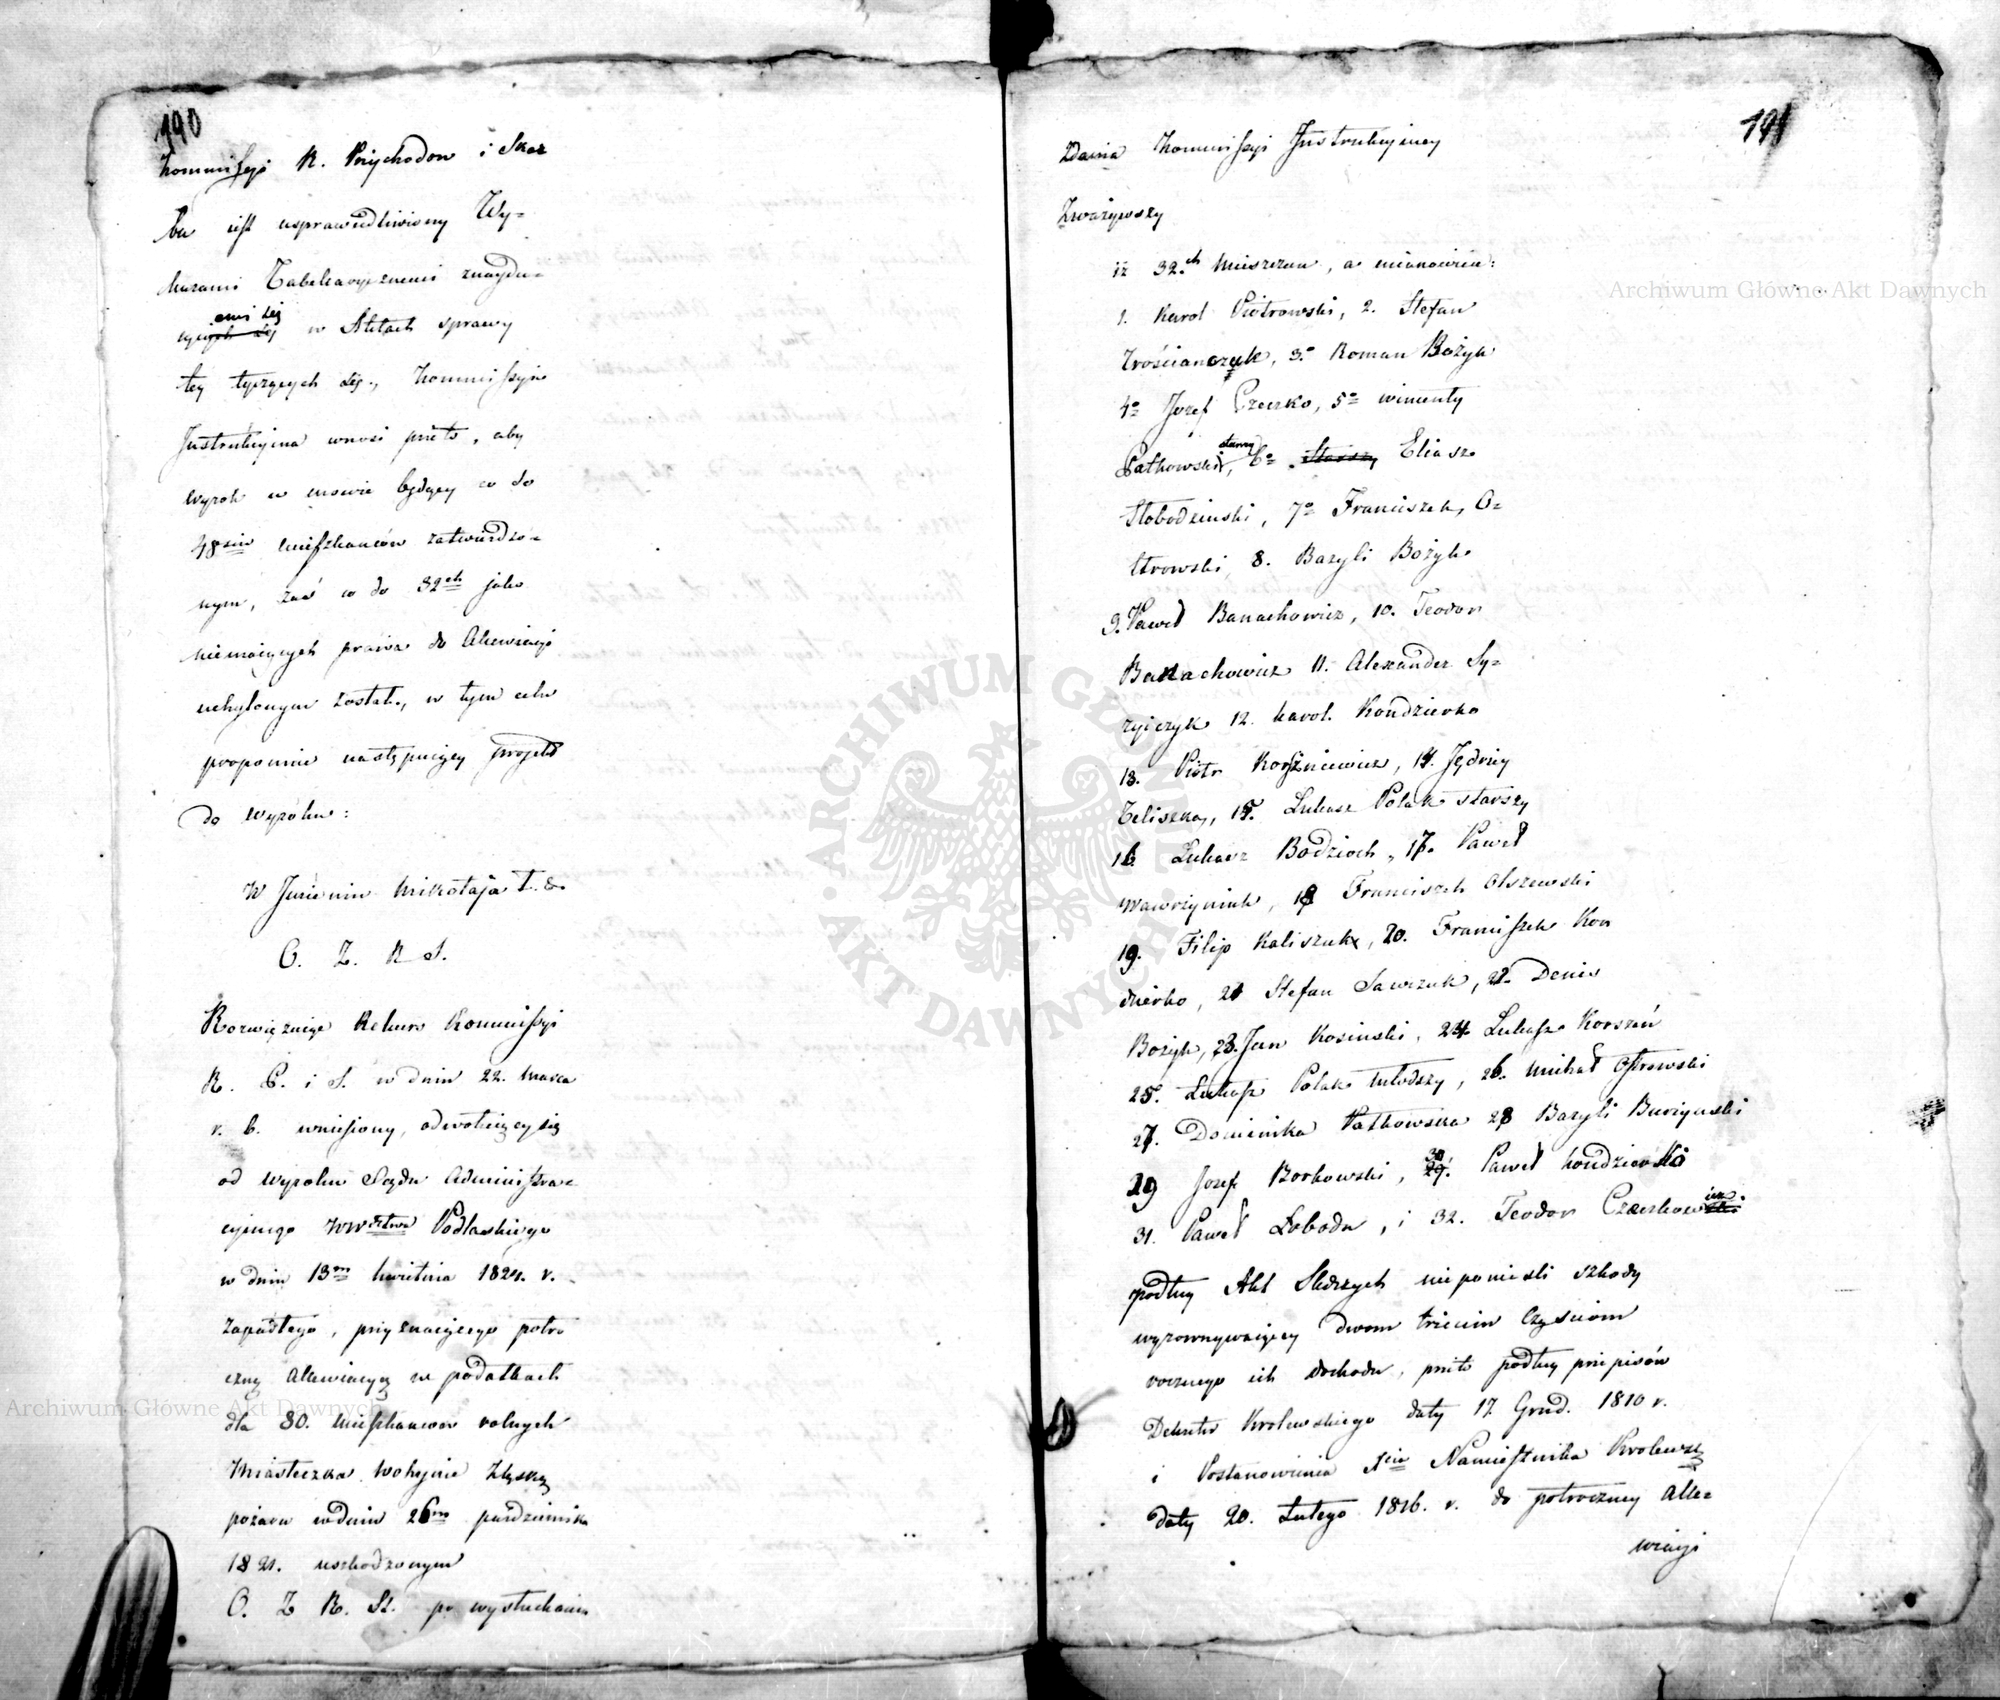 190
Kommissyi R. Przychodow i Skar
bu iest usprawiedliwiony Wy=
kazami Tabellarycznemi znaydu=
iących się emi się w Aktach sprawy
tey tyczących się, Kommissyia
Instrukcyina wnosi przeto, aby
wyrok w mowie będący co do
48miu mieszkańców zatwierdzo=
nym, zaś co do 32ch jako
niemaiących prawa do Allewiacyi
uchylonym został, w tym celu
proponuie następuiący projekt
do wyroku:
W Imieniu Mikołaja I. &
O. Z. R S.
Rozwiązuiąc Rekurs Kommissyi
R. P. i S. w dniu 22. Marca
r. b. wniesiony, odwołuiący się
od wyroku Sądu Administra=
cyinego Wwdztwa Podlaskiego
w dniu 13m kwietnia 1824. r.
zapadłego, przyznaiącego potro
czną allewiacyą w podatkach
dla 80. Mieszkancow rolnych
Miasteczka Wohynie klęską
pożaru w dniu 26m pazdziernika
1821. uszkodzonym
O. Z R. St. po wysłuchaniu
191
Zdania Kommissyi Instrukcyiney
Zważywszy
iż 32.ch Mieszczan, a mianowicie:
1. Karol Piotrowski, 2. Stefan
Trościanczuk, 3.o Roman Bożyk
4o Jozef Czeczko, 5o wincenty
Patkowski starszy, 6o Starszy Eliasz
Słobodzinski, 7o Franciszek O=
strowski, 8. Bazyli Bożyk
9. Paweł Banachowicz, 10. Teodor
Banachowicz 11. Alexander Sy=
ryiczyk 12. karol Kondzierko
13. Piotr Korzniewicz, 14. Jędrzey
Teliszka, 15. Łukasz Polak starszy
16 Łukasz Bodzioch, 17. Paweł
Wawrzyniuk, 18 Franciszek Olszewski
19. Filip Kaliszuk, 20. Franciszek Kon
dzierko, 21 Stefan Sawczuk, 22. Denis
Bożyk, 23. Jan Kosinski, 24 Łukasz Korszeń
25. Łukasz Polak młodszy, 26. Michał Ostrowski
27. Dominika Patkowska 28 Bazyli
29 Jozef Borkowski, 29. 30 Paweł Kondzierko
31. Paweł Łoboda, i 32. Teodor
podług Akt Sledczych nieponiesli szkody
wyrownywaiącey dwom trzecim Częsciom
rocznego ich dochodu, przeto podług przepisów
Dekretu Krolewskiego daty 17. Grud. 1810 r.
i Postanowienia Xcia Namiestnika Krolewsk
daty 20. Lutego 1816. r. do potroczney Alle=
wiacyi
Archiwum Główne Akt Dawnych
Archiwum Główne Akt Dawnych
ARCHIWUM GŁÓWNE AKT DAWNYCH